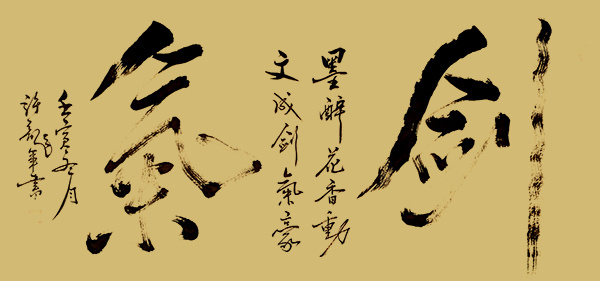 劍
氣
墨醉花香動
文成劍氣豪
壬寅冬月
許龍年書